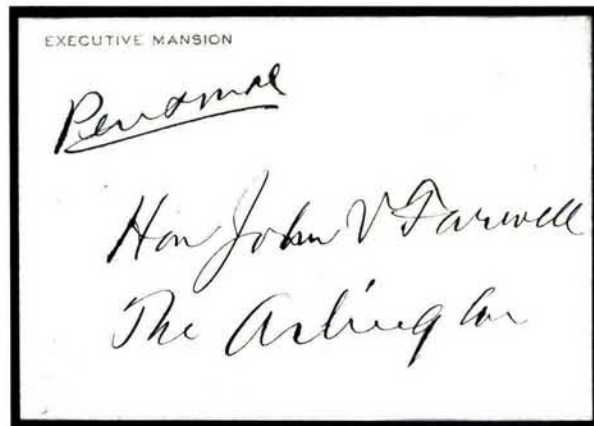 EXECUTIVE MANSION
Personal
Hon John V Farwell
The Arlington